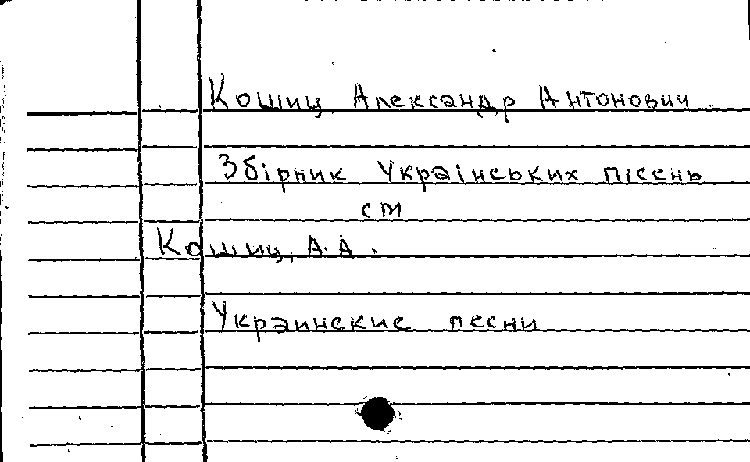 Кошиц, Александр Антонович
Збірник Українських пісень
см
Кошиц, А.А.
Украинские песни